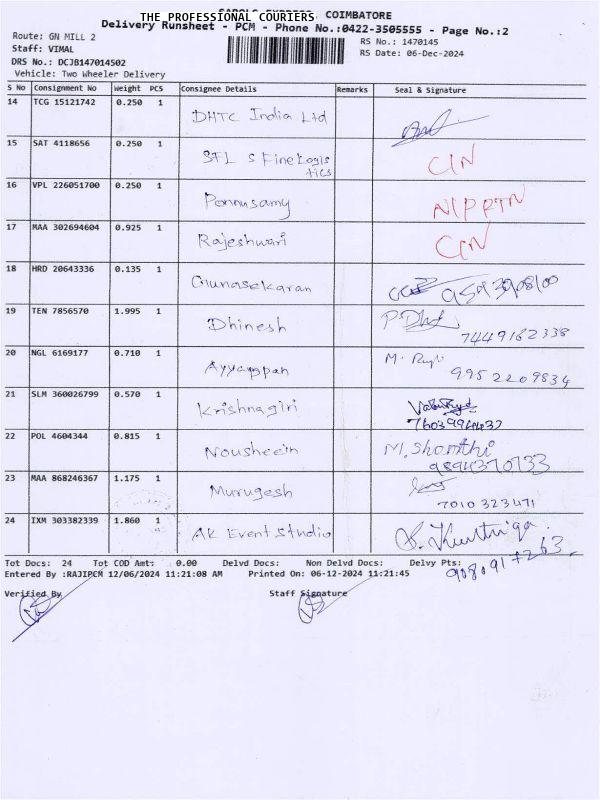 THE PROFESSIONAL COURIERS COIMBATORE
Delivery Runsheet - PCM - Phone No.:0422-3505555 - Page No.:2
Route: GN MILL 2
RS No.: 1470145
Staff: VIMAL
RS Date: 06-Dec-2024
DRS No.: DCJB147014502
Vehicle: Two Wheeler Delivery
S No Consignment No Weight PCS Consignee Details Remarks Seal & Signature
14 TCG 15121742 0.250 1 DHTC India Ltd
15 SAT 4118656 0.250 1 SFL S Fine Logis
tics
16 VPL 226051700 0.250 1 Ponnusamy
17 MAA 302694604 0.925 1 Rajeshwari
18 HRD 20643336 0.135 1 Gunasekaran
19 TEN 7856570 1.995 1 Dhinesh
7449162338
20 NGL 6169177 0.710 1 Ayyappan
9952209834
21 SLM 360026799 0.570 1 Krishnagiri
22 POL 4604344 0.815 1 Nousheein M. Shanthi
9894370733
23 MAA 868246367 1.175 1 Murugesh
7010 323471
24 IXM 303382339 1.860 1 AK Event Studio
9080917263
Tot Docs: 24 Tot COD Amt: 0.00 Delvd Docs: Non Delvd Docs: Delvy Pts:
Entered By :RAJIPCM 12/06/2024 11:21:08 AM Printed On: 06-12-2024 11:21:45
Verified By Staff Signature